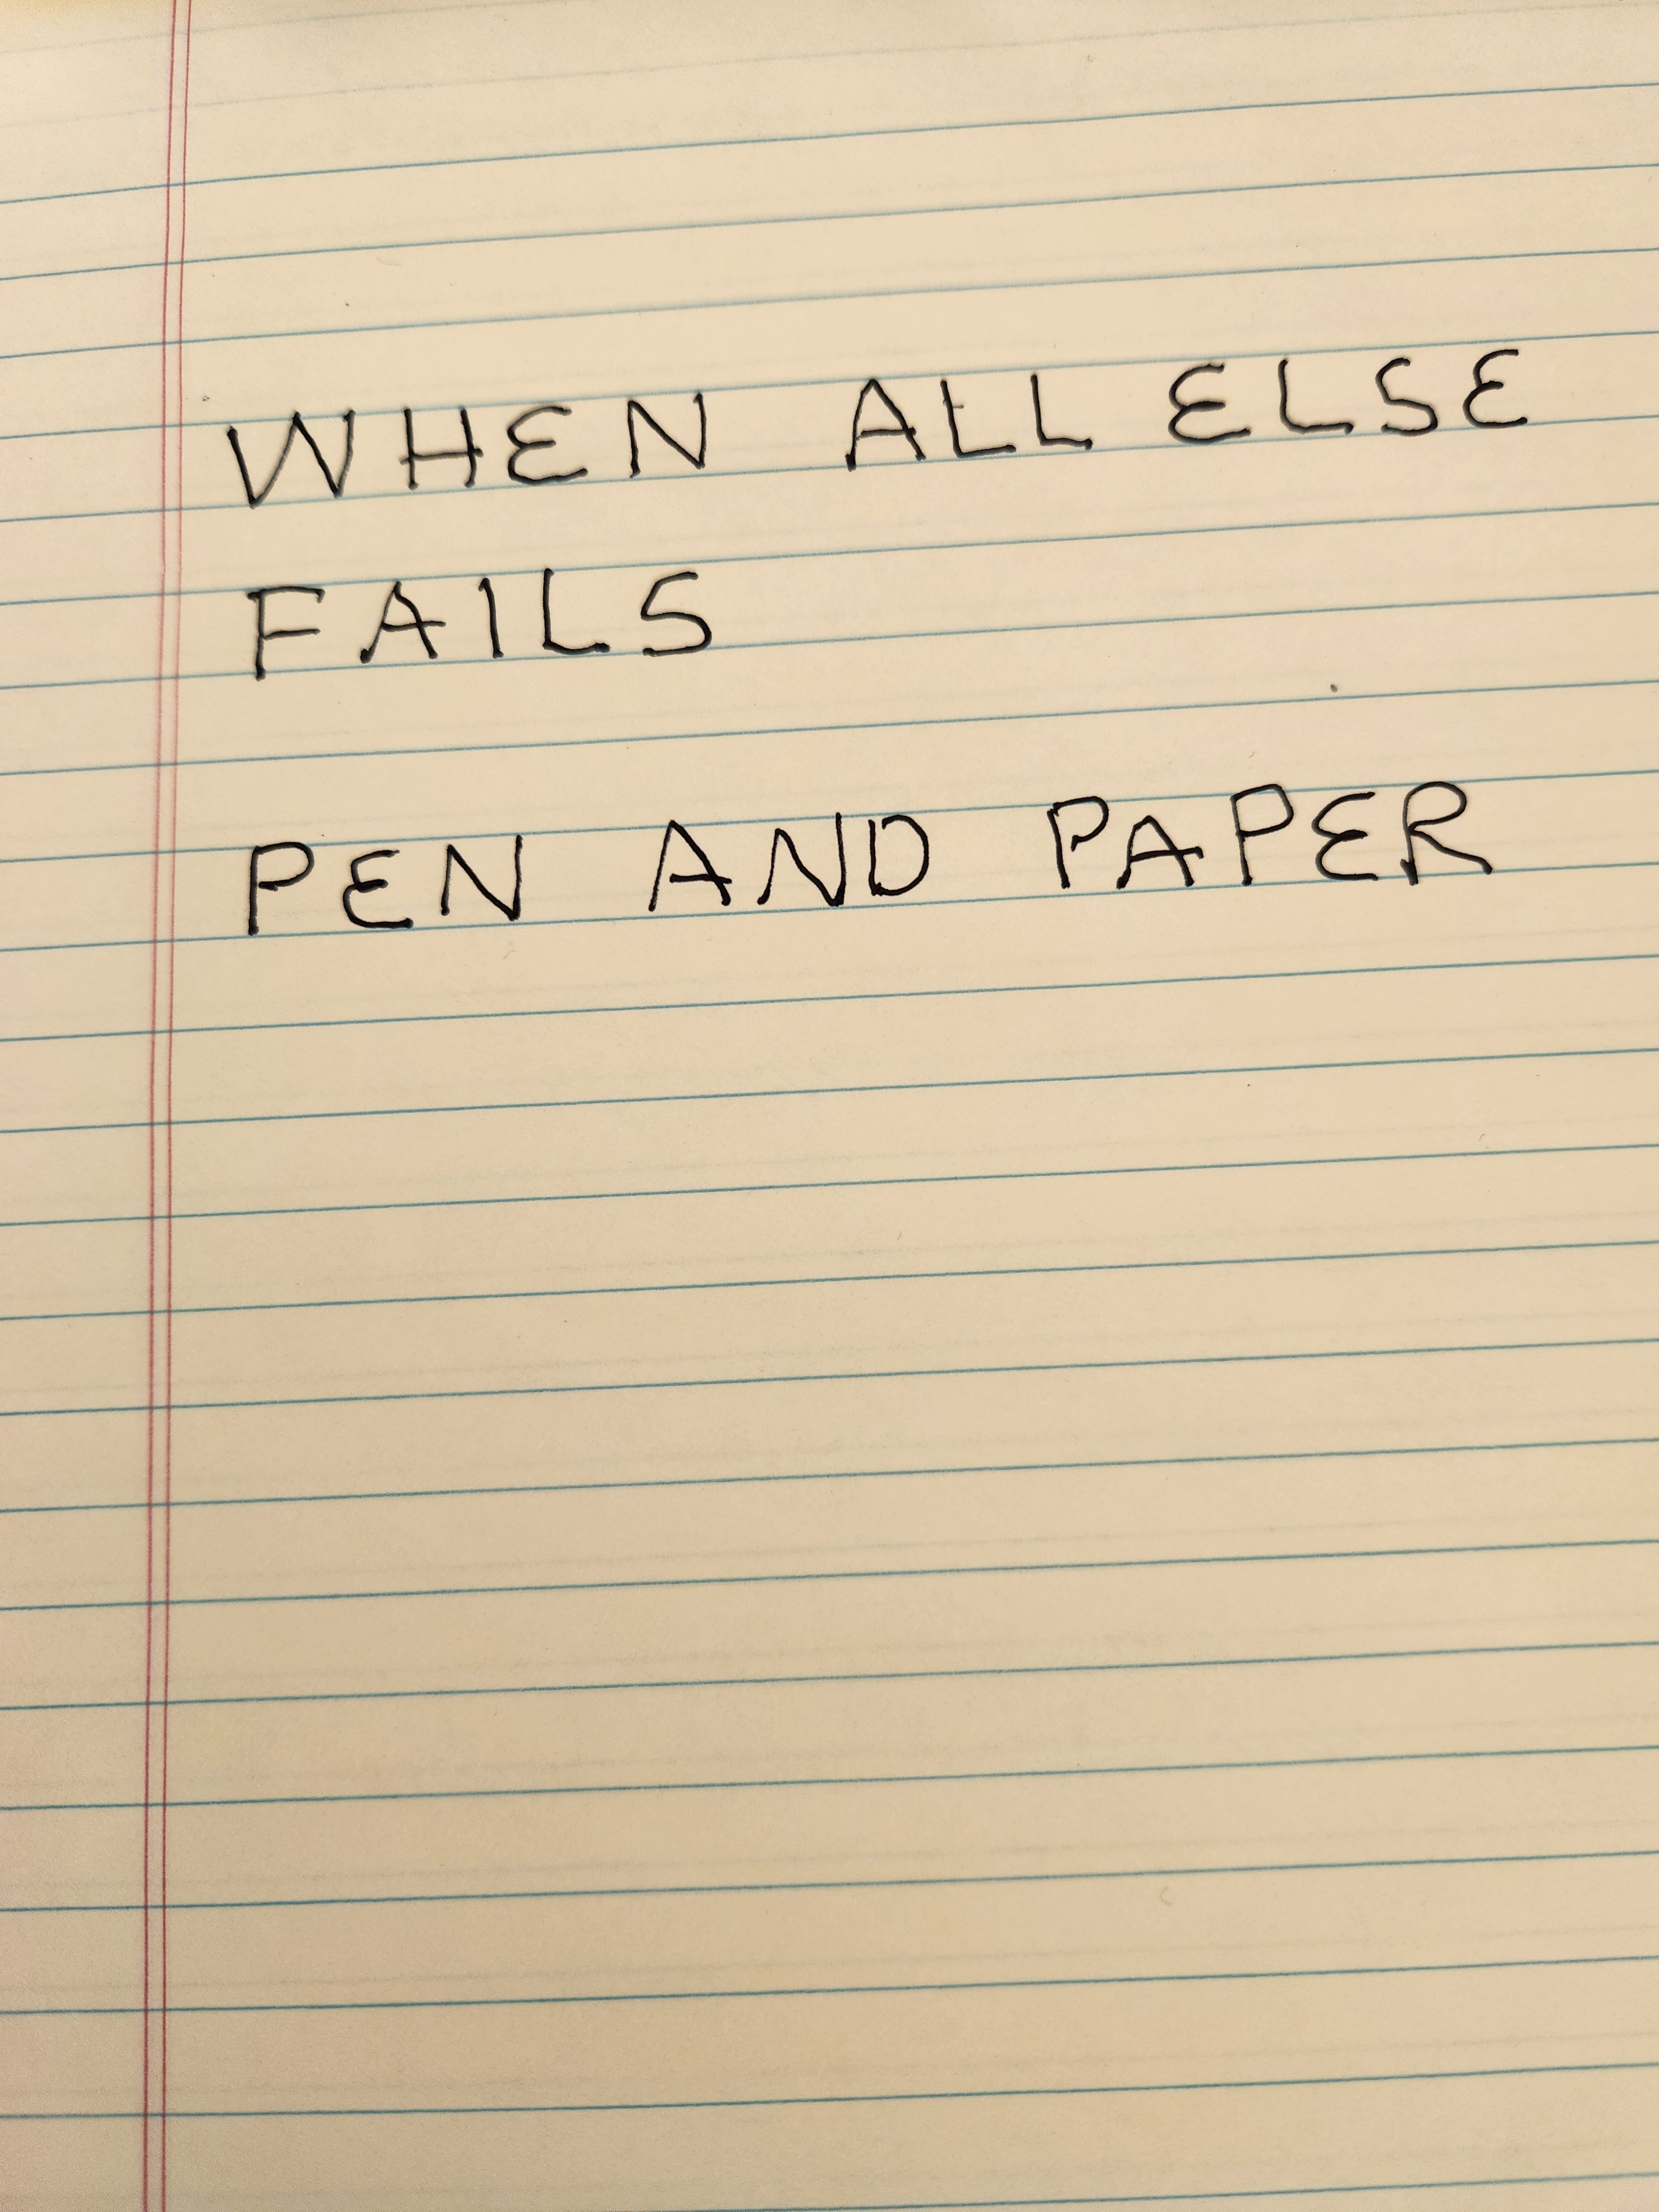 WHEN ALL ELSE
FAILS
PEN AND PAPER